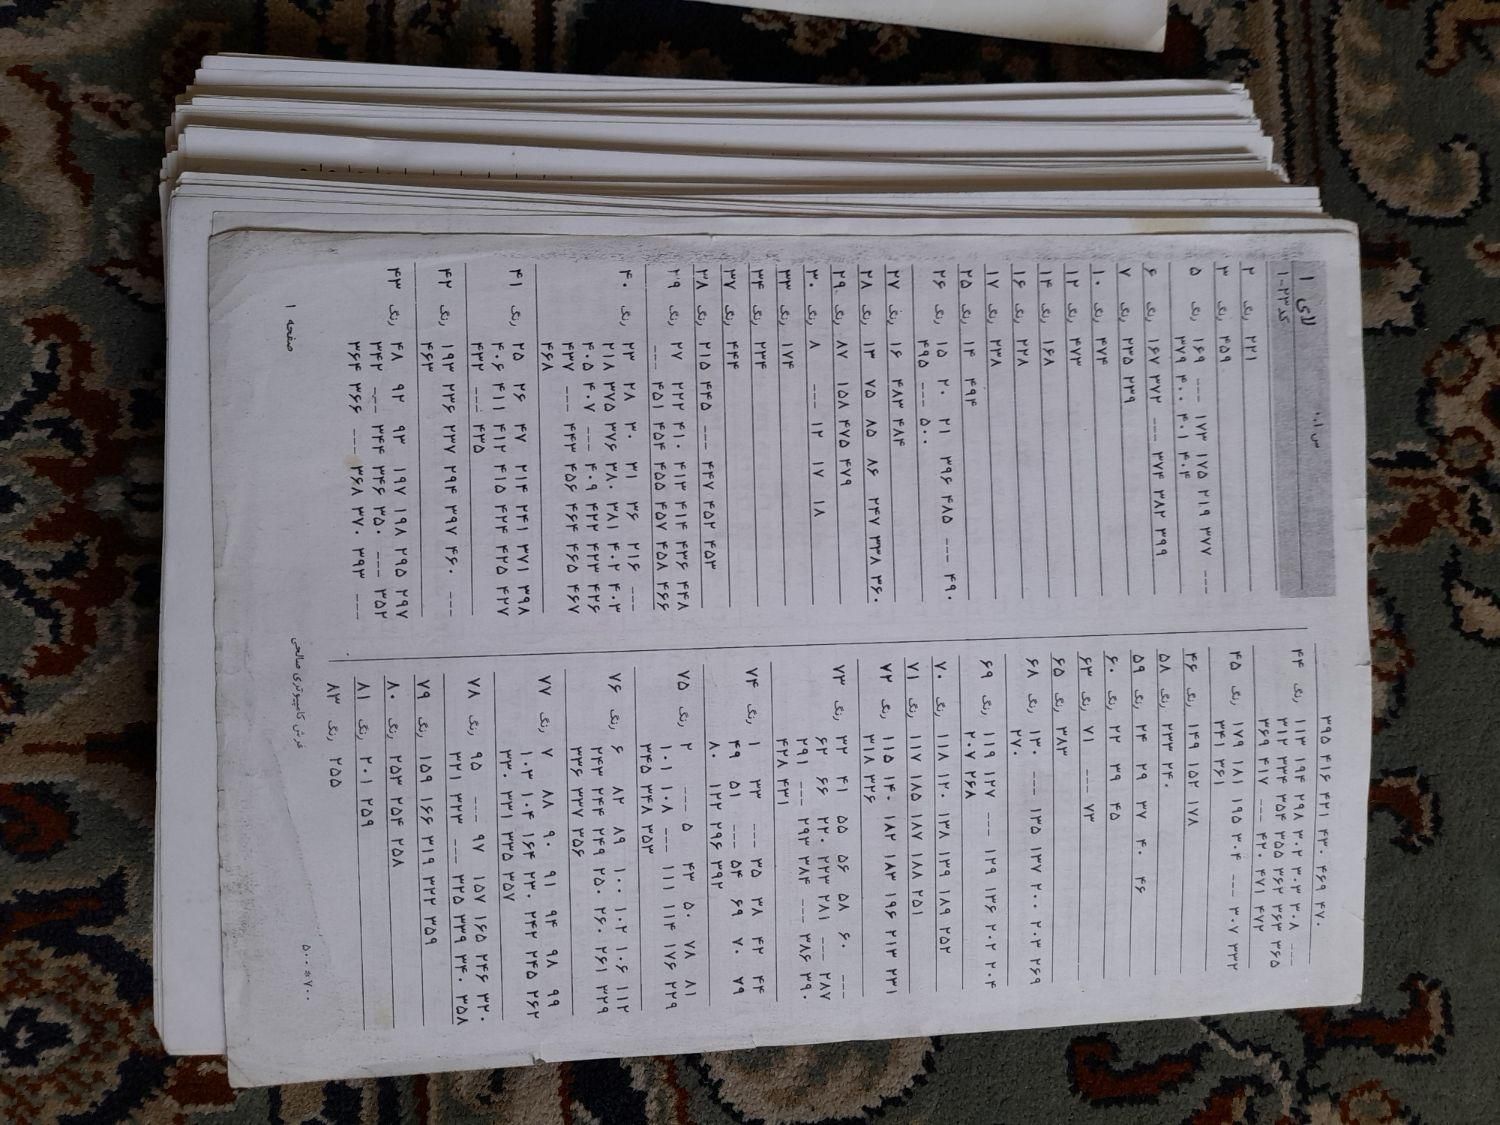 لای ۱
کد ۲۳-۱
س ۰۱
۲ رنگ ۲۲۱
۳ رنگ ۴۵۹
۵ رنگ ۱۶۹ --- ۱۷۳ ۱۷۵ ۲۱۹ ۳۷۷ ---
۳۷۹ ۴۰۰ ۴۰۱ ۴۰۴
۶ رنگ ۱۶۷ ۳۷۲ --- ۳۷۴ ۳۸۲ ۳۹۹
۷ رنگ ۲۳۵ ۲۳۹
۱۰ رنگ ۴۷۴
۱۲ رنگ ۴۷۳
۱۴ رنگ ۱۶۸
۱۶ رنگ ۲۲۸
۱۷ رنگ ۲۳۸
۲۵ رنگ ۱۴ ۴۹۴
۲۶ رنگ ۱۵ ۲۰ ۲۱ ۳۹۶ ۴۸۵ --- ۴۹۰
۴۹۵ --- ۵۰۰
۲۷ رنگ ۱۶ ۴۸۳ ۴۸۴
۲۸ رنگ ۱۳ ۷۵ ۸۵ ۸۶ ۲۴۷ ۳۳۸ ۳۶۰
۲۹ رنگ ۸۷ ۱۵۸ ۴۷۵ ۴۷۹
۳۰ رنگ ۸ --- ۱۲ ۱۷ ۱۸
۳۳ رنگ ۱۷۴
۳۴ رنگ ۲۳۴
۳۷ رنگ ۴۴۴
۳۸ رنگ ۲۱۵ ۴۴۵ --- ۴۴۷ ۴۵۲ ۴۵۳
۳۹ رنگ ۲۷ ۲۲۲ ۴۱۰ ۴۱۳ ۴۱۴ ۴۳۶ ۴۴۸
--- ۴۵۱ ۴۵۴ ۴۵۵ ۴۵۷ ۴۵۸ ۴۶۶
۴۰ رنگ ۲۳ ۲۸ ۳۰ ۳۱ ۳۶ ۲۱۶ ---
۲۱۸ ۳۷۵ ۳۷۶ ۳۸۰ ۳۸۱ ۴۰۲ ۴۰۳
۴۰۵ ۴۰۷ --- ۴۰۹ ۴۲۲ ۴۲۳ ۴۲۶
۴۳۷ --- ۴۴۳ ۴۵۶ ۴۶۴ ۴۶۵ ۴۶۷
۴۶۸
۴۱ رنگ ۲۵ ۲۶ ۴۷ ۲۱۴ ۲۴۱ ۳۷۱ ۳۹۸
۴۰۶ ۴۱۱ ۴۱۲ ۴۱۵ ۴۲۴ ۴۲۵ ۴۲۷
۴۳۲ --- ۴۳۵
۴۲ رنگ ۱۹۳ ۲۳۶ ۲۳۷ ۳۹۴ ۳۹۷ ۴۶۰ ---
۴۶۳
۴۳ رنگ ۴۸ ۹۲ ۹۳ ۱۹۷ ۱۹۸ ۲۹۵ ۲۹۷
۳۴۲ --- ۳۴۴ ۳۴۶ ۳۵۰ --- ۳۵۲
۳۶۴ ۳۶۶ --- ۳۶۸ ۳۷۰ ۳۹۳ ---
۳۹۵ ۴۱۶ ۴۲۱ ۴۳۰ ۴۶۹ ۴۷۰
۴۴ رنگ ۱۱۳ ۱۹۴ ۲۹۸ ۳۰۲ ۳۰۳ ۳۰۸ ---
۳۱۲ ۳۳۴ ۳۵۴ ۳۵۵ ۳۶۲ ۳۶۳ ۳۶۵
۳۶۹ ۴۱۷ --- ۴۲۰ ۴۷۱ ۴۷۲
۴۵ رنگ ۱۷۹ ۱۸۱ ۱۹۵ ۳۰۴ --- ۳۰۷ ۳۳۲
۳۴۱ ۳۶۱
۴۶ رنگ ۱۴۹ ۱۵۲ ۱۷۸
۵۸ رنگ ۲۳۳ ۲۴۰
۵۹ رنگ ۲۴ ۲۹ ۳۷ ۴۰ ۴۶
۶۰ رنگ ۲۲ ۳۹ ۴۵
۶۳ رنگ ۷۱ --- ۷۳
۶۵ رنگ ۳۸۳
۶۸ رنگ ۱۳۰ --- ۱۳۵ ۱۳۷ ۲۰۰ ۲۰۳ ۲۶۹
۲۷۰
۶۹ رنگ ۱۱۹ ۱۲۷ --- ۱۲۹ ۱۳۶ ۲۰۲ ۲۰۴
۲۰۷ ۲۶۸
۷۰ رنگ ۱۱۸ ۱۲۰ ۱۳۸ ۱۳۹ ۱۸۹ ۲۵۲
۷۱ رنگ ۱۱۷ ۱۸۵ ۱۸۷ ۱۸۸ ۲۵۱
۷۲ رنگ ۱۱۵ ۱۴۰ ۱۸۲ ۱۸۳ ۱۹۶ ۲۱۳ ۲۳۱
۳۱۸ ۳۲۶
۷۳ رنگ ۳۲ ۴۱ ۵۵ ۵۶ ۵۸ ۶۰ ---
۶۲ ۶۶ ۲۲۰ ۲۲۳ ۲۸۱ --- ۲۸۷
۲۹۱ --- ۲۹۳ ۳۸۴ --- ۳۸۶ ۳۹۰
۴۲۸ ۴۳۱
۷۴ رنگ ۱ ۳۳ --- ۳۵ ۳۸ ۴۲ ۴۴
۴۹ ۵۱ --- ۵۴ ۶۹ ۷۰ ۷۹
۸۰ ۱۲۲ ۲۹۶ ۳۹۲
۷۵ رنگ ۲ --- ۵ ۴۳ ۵۰ ۷۸ ۸۱
۱۰۱ ۱۰۸ --- ۱۱۱ ۱۱۴ ۱۷۶ ۲۲۹
۳۴۵ ۳۴۸ ۳۵۳
۷۶ رنگ ۶ ۸۲ ۸۹ ۱۰۰ ۱۰۲ ۱۰۶ ۱۱۲
۲۴۳ ۲۴۴ ۲۴۹ ۲۵۰ ۲۶۰ ۲۶۱ ۳۲۹
۳۳۶ ۳۳۷ ۳۵۶
۷۷ رنگ ۷ ۸۸ ۹۰ ۹۱ ۹۴ ۹۸ ۹۹
۱۰۳ ۱۰۴ ۱۶۴ ۲۳۰ ۲۴۲ ۲۴۵ ۲۶۲
۳۳۰ ۳۳۱ ۳۳۵ ۳۵۷
۷۸ رنگ ۹۵ --- ۹۷ ۱۵۷ ۱۶۵ ۲۴۶ ۳۲۰
۳۲۱ ۳۲۳ --- ۳۲۵ ۳۳۹ ۳۴۰ ۳۵۸
۷۹ رنگ ۱۵۹ ۱۶۶ ۳۱۹ ۳۲۲ ۳۵۹
۸۰ رنگ ۲۵۳ ۲۵۴ ۲۵۸
۸۱ رنگ ۲۰۱ ۲۵۹
۸۳ رنگ ۲۵۵
صفحه ۱
فرش کامپیوتری صالحی
۵۰۰*۷۰۰